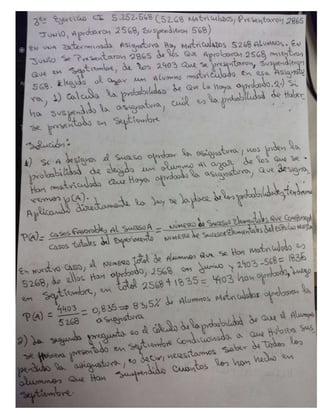 3er Ejercicio CI 5.252.568 (5268 Matriculados, Presentaron 2865
Junio, Aprobaron 2568, Suspendieron 568)
En una Determinada Asignatura Hay Matriculados 5268 Alumnos. En
Junio se Presentaron 2865 de los que Aprobaron 2568 mientras
que en Septiembre, de los 2403 que se presentaron, Suspendieron
568. Elegido al azar un Alumno matriculado en esa Asignatu
ra, 1) Calcula la probabilidad de que la Haya aprobado. 2) Si
ha suspendido la asignatura, cuál es la probabilidad de Haber
se presentado en Septiembre
Solución:
1) Si A designa el suceso aprobar la asignatura, nos piden la
probabilidad de elegido un alumno al azar, de los que se
Han matriculado que Haya aprobado la asignatura, que designa
remos p(A):
Aplicando directamente la ley de laplace de las probabilidades, tendremos
P(A) = Casos Favorables Al Suceso A = Número de Sucesos Elementales que
Casos totales del Experimento Número de Sucesos Elementales del espacio
En nuestro Caso, el Número total de Alumnos que se Han matriculado es
5268, de ellos Han aprobado, 2568 en Junio y 2403-568=1835
en Septiembre, en total 2568+1835=4403 han aprobado, luego
P(A) = 4403 = 0,835 ⇒ 83,5% de Alumnos Matriculados aprobaron la
5268 asignatura
2) La segunda pregunta es el cálculo de la probabilidad de que el Alumno
se Hubiera presentado en Septiembre Condicionada a que Hubiera Sus
pendido la asignatura, es decir, necesitamos Saber de Todos los
alumnos que Han Suspendido Cuantos los han hecho en
Septiembre.